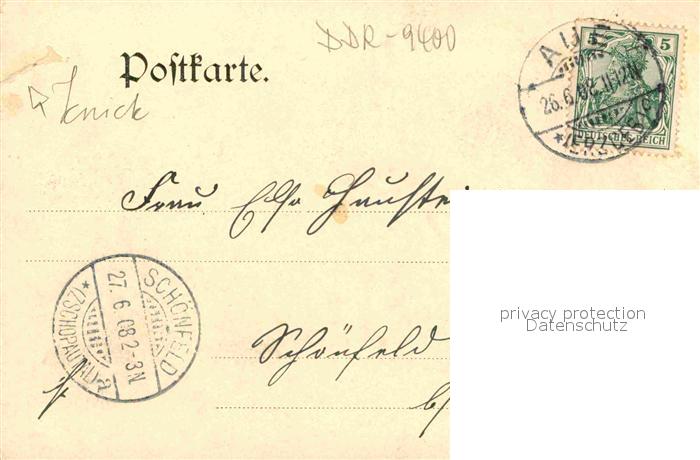 DDR-9400
Postkarte.
Knick
5 5
DEUTSCHES REICH
AUE
26.6.08.11-12V.
*(ERZGEB.)*
Frau Elsa Haustein
SCHÖNFELD
27.6.08 2-3N
*(ZSCHOPAUTAL)
privacy protection
Datenschutz
Schönfeld
b/